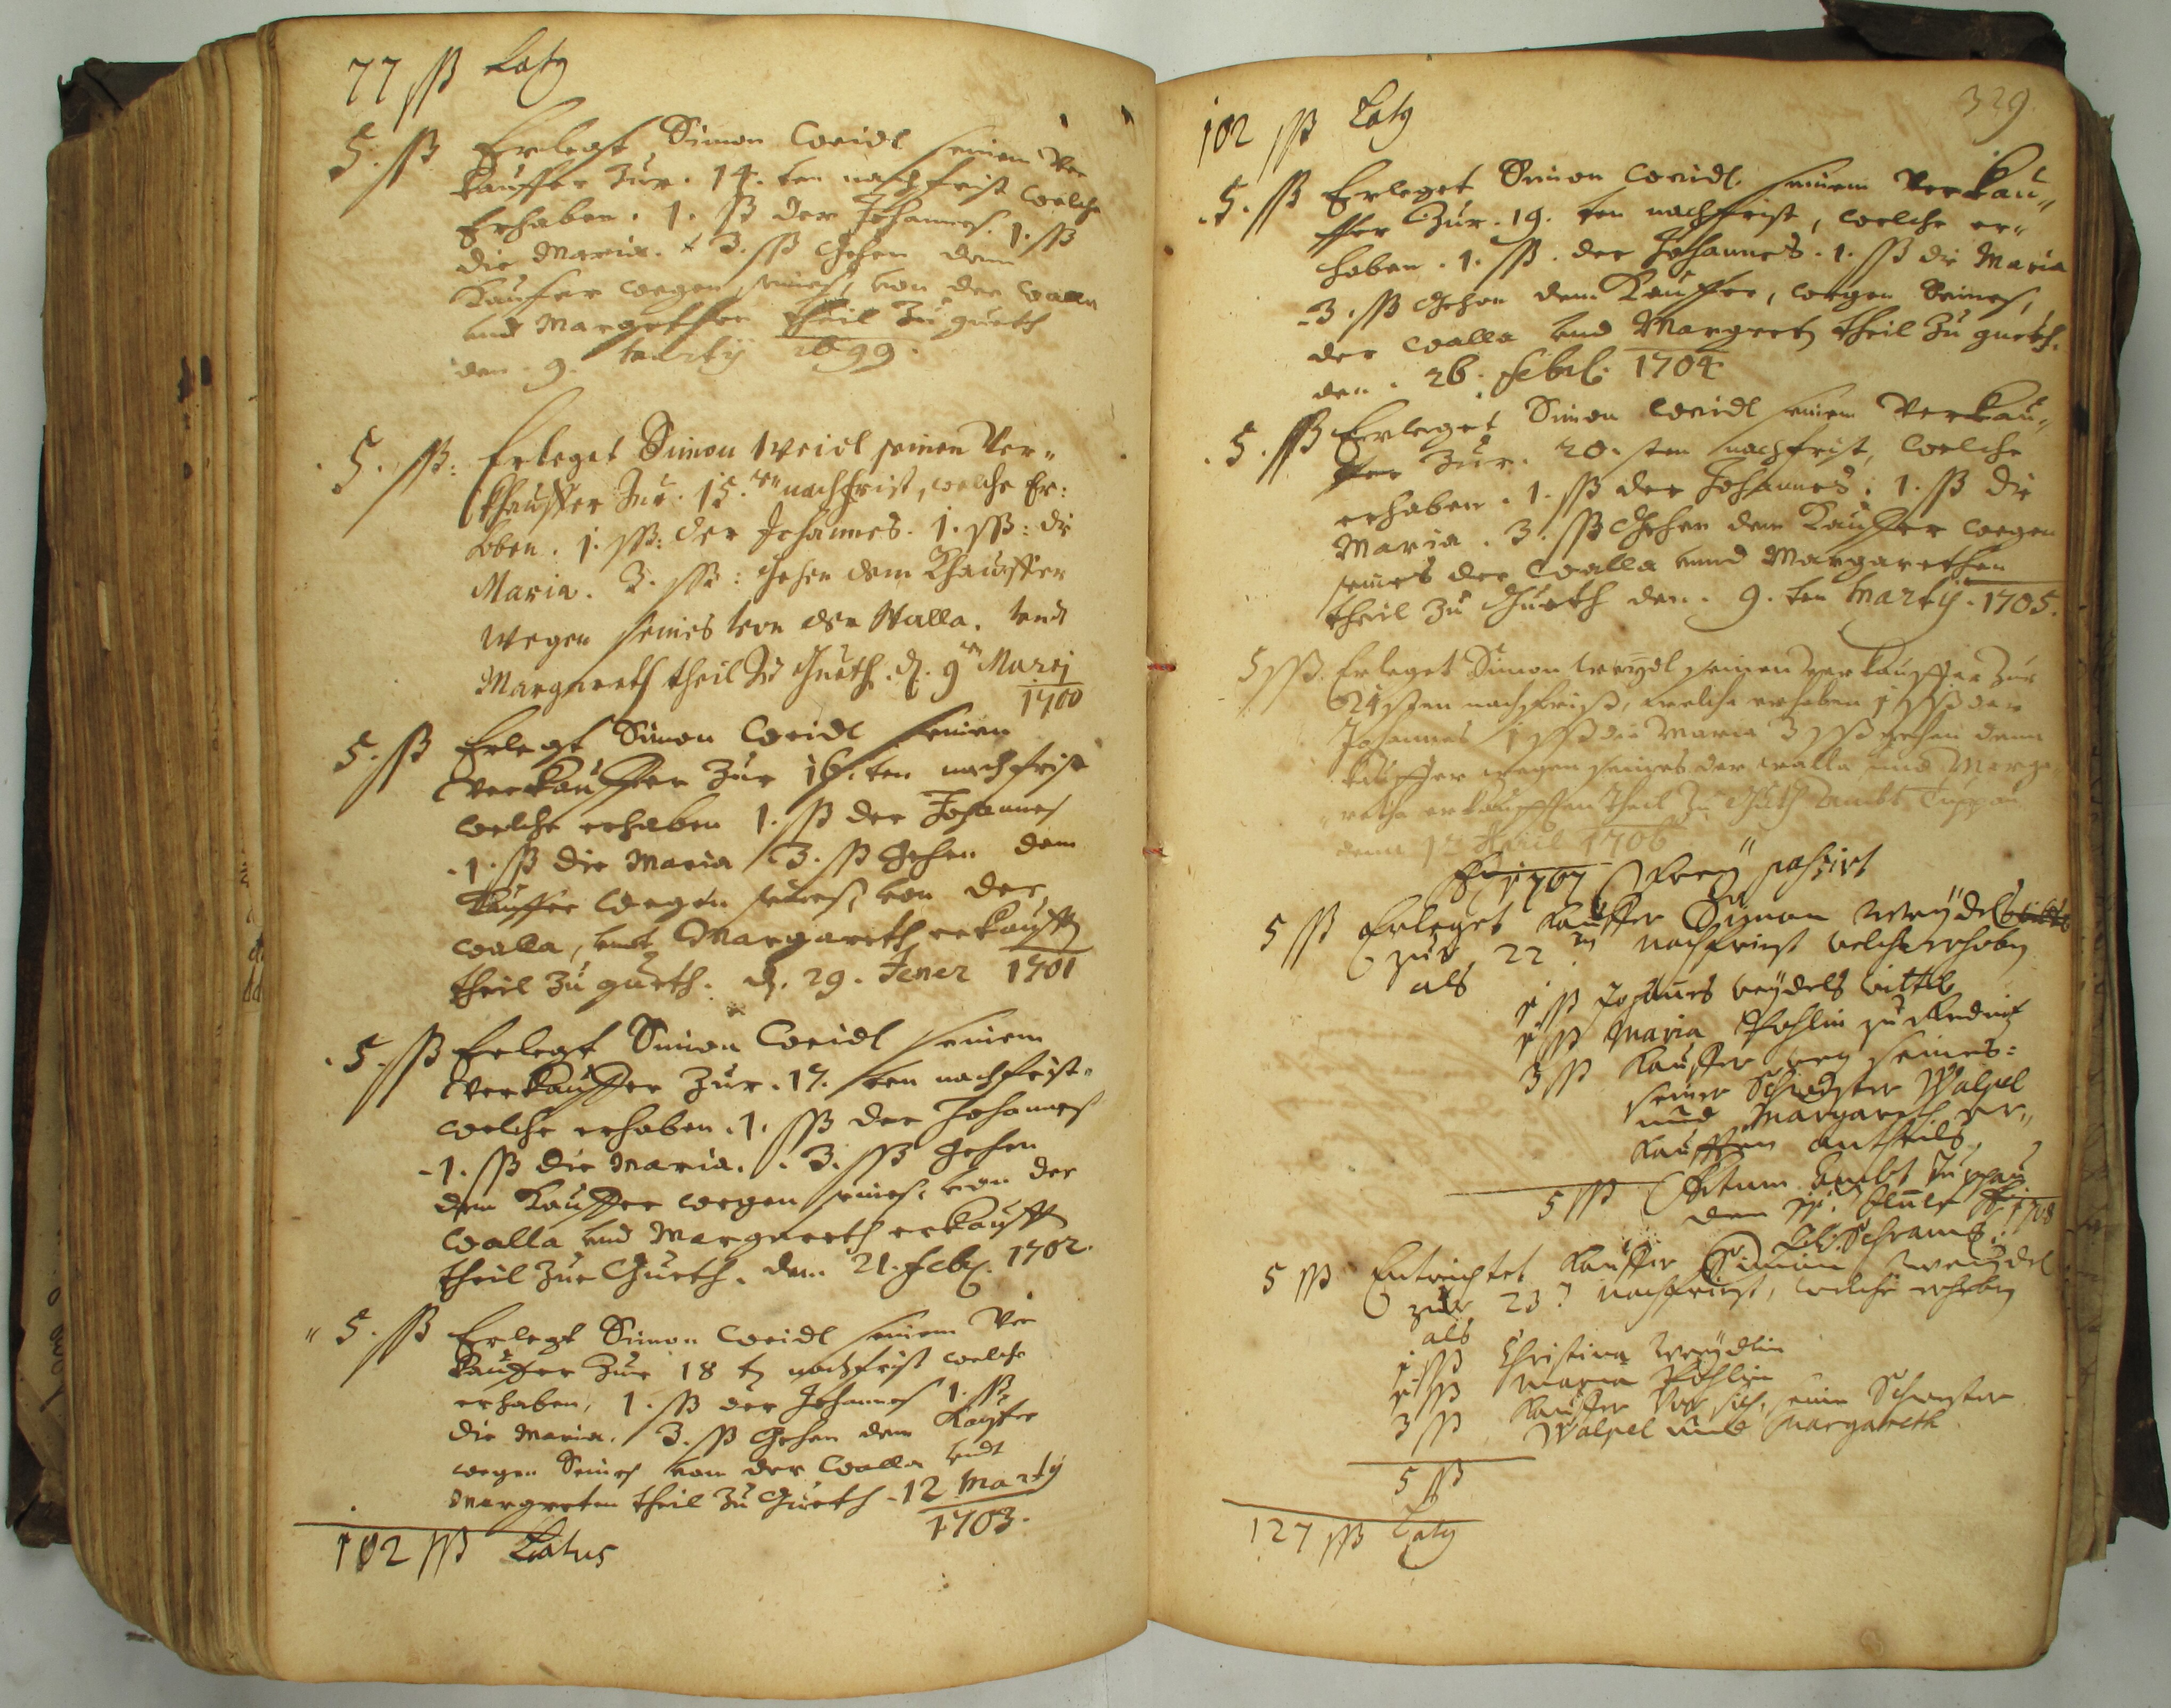 77 ßß Laty
5. ßß Erlegt Simon Weidl seinem Ver
kauffer zur. 14. ten nachfrist welche
Erhaben. 1. ßß der Johannes. 1. ßß
die Maria. 3. ßß Gehen dem
Kauffer wegen seines, von der Walla
und Margethen theil zu gueth
den. 9. Marty 1699.
5. ßß: Erleget Simon Weidl seinen Ver„
khauffer Zur. 15.ten nachfrist, welche Er:
hoben. 1. ßß: der Johannes. 1. ßß: die
Maria. 3. ßß: Gehen dem Khauffer
wegen seines von der Walla. undt
Margareth theil Zu Gueth. d. 9ten Marzj
1700
5. ßß Erlegt Simon Weidl seinen
Verkauffer Zur 16. ten nachfrist
welche erhaben 1. ßß der Johannes
.1. ßß die Maria 3. ßß Gehen dem
Kauffer wegen seines, von der
Walla, undt Margareth erkaufft
theil Zu gueth. d. 29. Jener 1701
.5. ßß Erlegt Simon Weidl seinem
Verkauffer Zur. 17. ten nachfrist„
welche erhaben .1. ßß der Johannes
-1. ßß die Maria. . 3. ßß Gehen
dem Kauffer wegen seines, von der
Walla und Margareth erkaufft
theil Zur Gueth. den 21. Feb. 1702.
„ 5. ßß Erlegt Simon Weidl seinem Ver
kauffer Zur 18 t nachfrist welche
erhaben, 1. ßß der Johannes 1. ßß
die Maria. 3. ßß Gehen dem Kauffer
wegen Seines von der Walla undt
Margreten theil Zu Gueth - 12 Marty
1703.
102 ßß Latus
329.
102 ßß Laty
.5. ßß Erleget Simon Weidl. seinem Verkau„
ffer Zur. 19. ten nachfrist, welche er„
haben. 1. ßß. der Johannes. 1. ßß die Maria
-3. ßß Gehen dem Kauffer, wegen Seines,
der Walla und Margret theil Zu gueth.
den. 26. Feb. 1704
.5. ßß Erleget Simon Weidl seinem Verkau„
ffer Zur. 20. sten nachfrist, welche
erhaben. 1. ßß der Johannes. 1. ßß die
Maria. 3. ßß Gehen dem Kauffer wegen
seines der Walla unnd Margarethen
theil Zu Gueth den. 9. ten Marty. 1705.
5 ßß. Erleget Simon Weydl seinen Verkauffer Zur
21sten nachfrist, welche erhoben 1 ßß der
Johannes 1 ßß die Maria 3 ßß gehen dem
Kauffer wegen seines der Walla und Marga„
retha erkaufften Theil Zu Guth Ambt Tuppau
denn 12 Aprill 1706
1707 Frey passirt
5 ßß Erleget Kauffer Simon Weydel
zur 22ten nachfrist welche erhoben
als
1 ßß Johannes Weydels Wittib
1 ßß Maria Pohlin zu
3 ßß Kauffer weg seines:
seiner Schwester Walpel
und Margareth er„
kaufften antheils,
5 ßß Actum Ambt Tuppau
1708
Schramb
5 ßß Entrichtet Kauffer Simon Weydel
zur 23. nachfrist, welche erhoben
als
1 ßß Christina Weydlin
1 ßß Maria Pohlin
3 ßß Kauffer vor sich, seine Schwester
Walpel und Margareth
5 ßß
127 ßß Laty